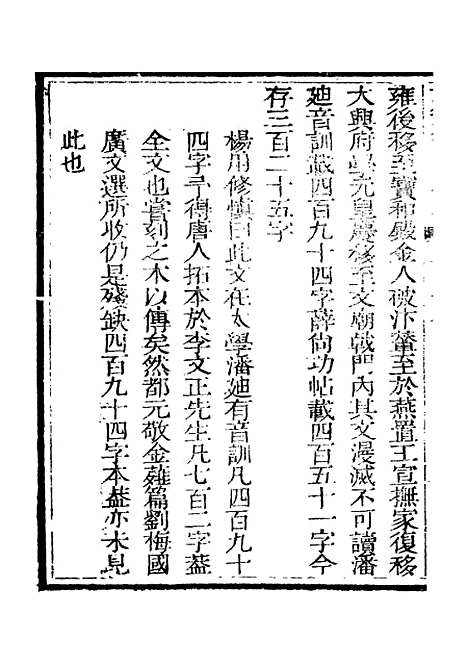 雍後移至寶和殿金人破汴輦至於燕置王宣撫家復移
大興府學元皇慶移至文廟戟門內其文漫滅不可讀潘
迪音訓載四百九十四字薛尙功帖載四百五十一字今
存三百二十五字
楊用修慎曰此文在太學潘廸有音訓凡四百九十
四字予得唐人拓本於李文正先生凡七百二字蓋
全文也嘗刻之木以傳矣然都元敬金薤篇劉梅國
廣文選所收仍是殘缺四百九十四字本蓋亦未見
此也